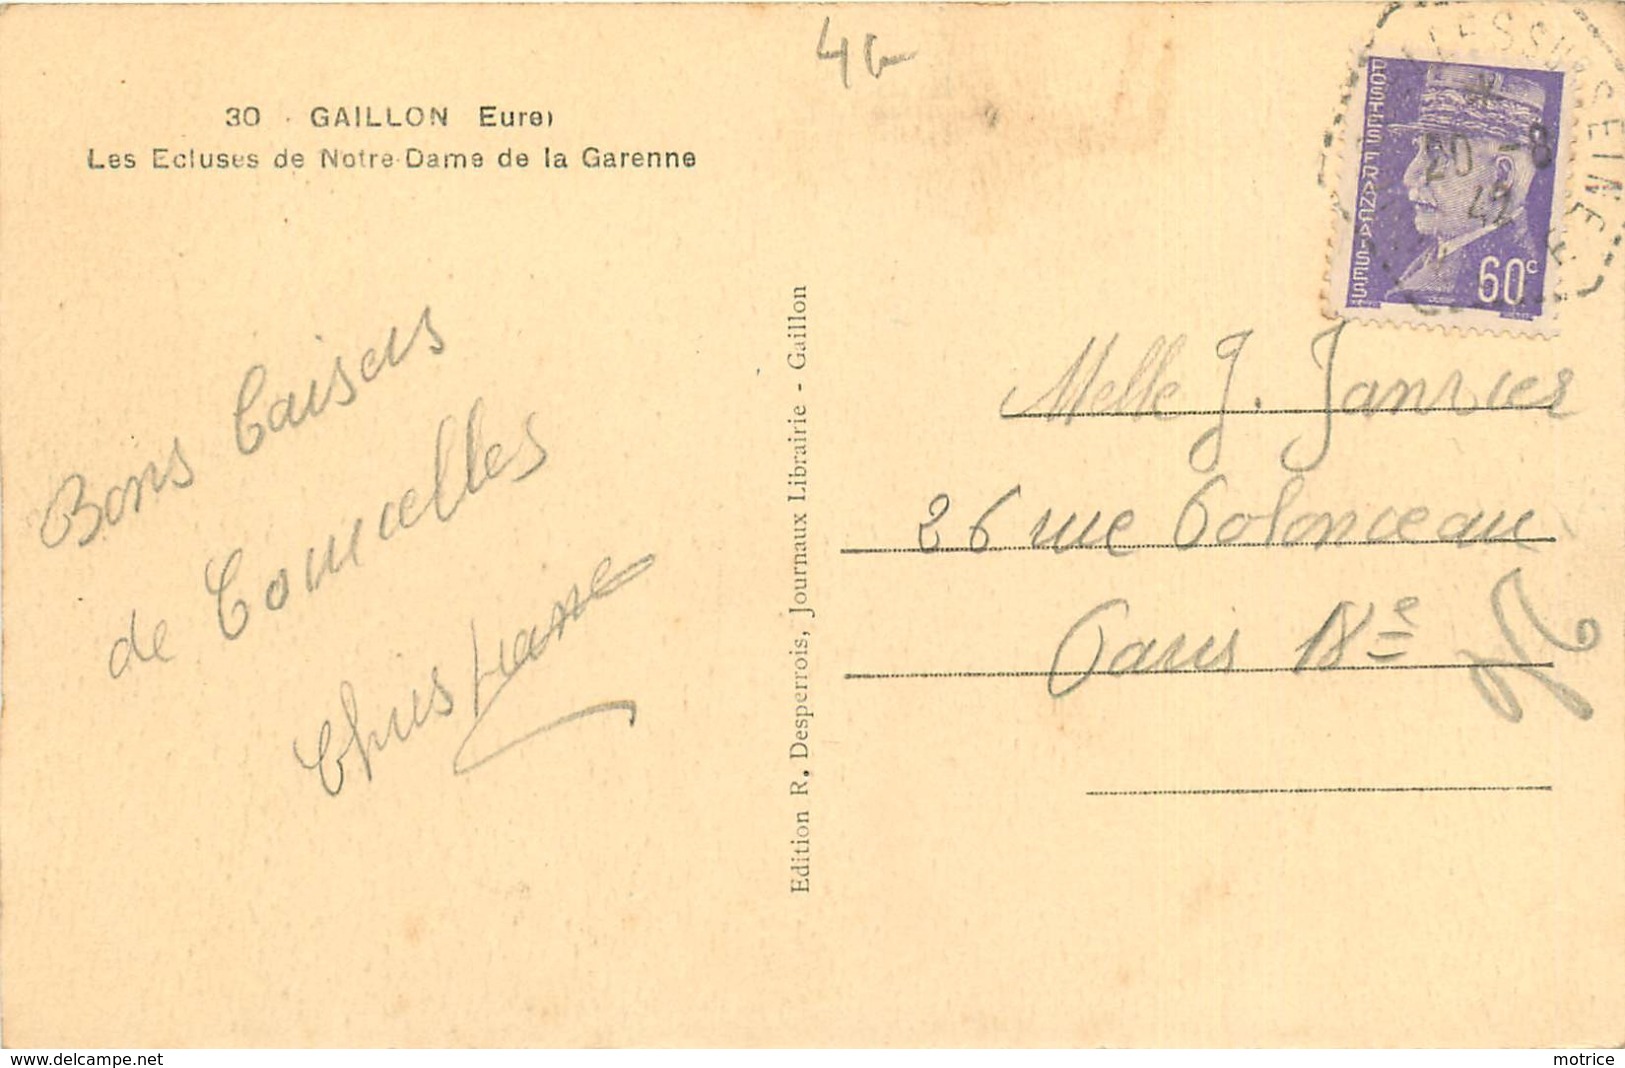 4G
30 - GAILLON Eure)
Les Ecluses de Notre-Dame de la Garenne
Bons baisers
de Courcelles
Edition R. Desperrois, Journaux Librairie - Gaillon
POSTES FRANÇAISES
60c
LESSUR SEINE
20 -8
42
Melle J. Janvier
26 rue Polonceau
Paris 18e
www.delcampe.net
motrice